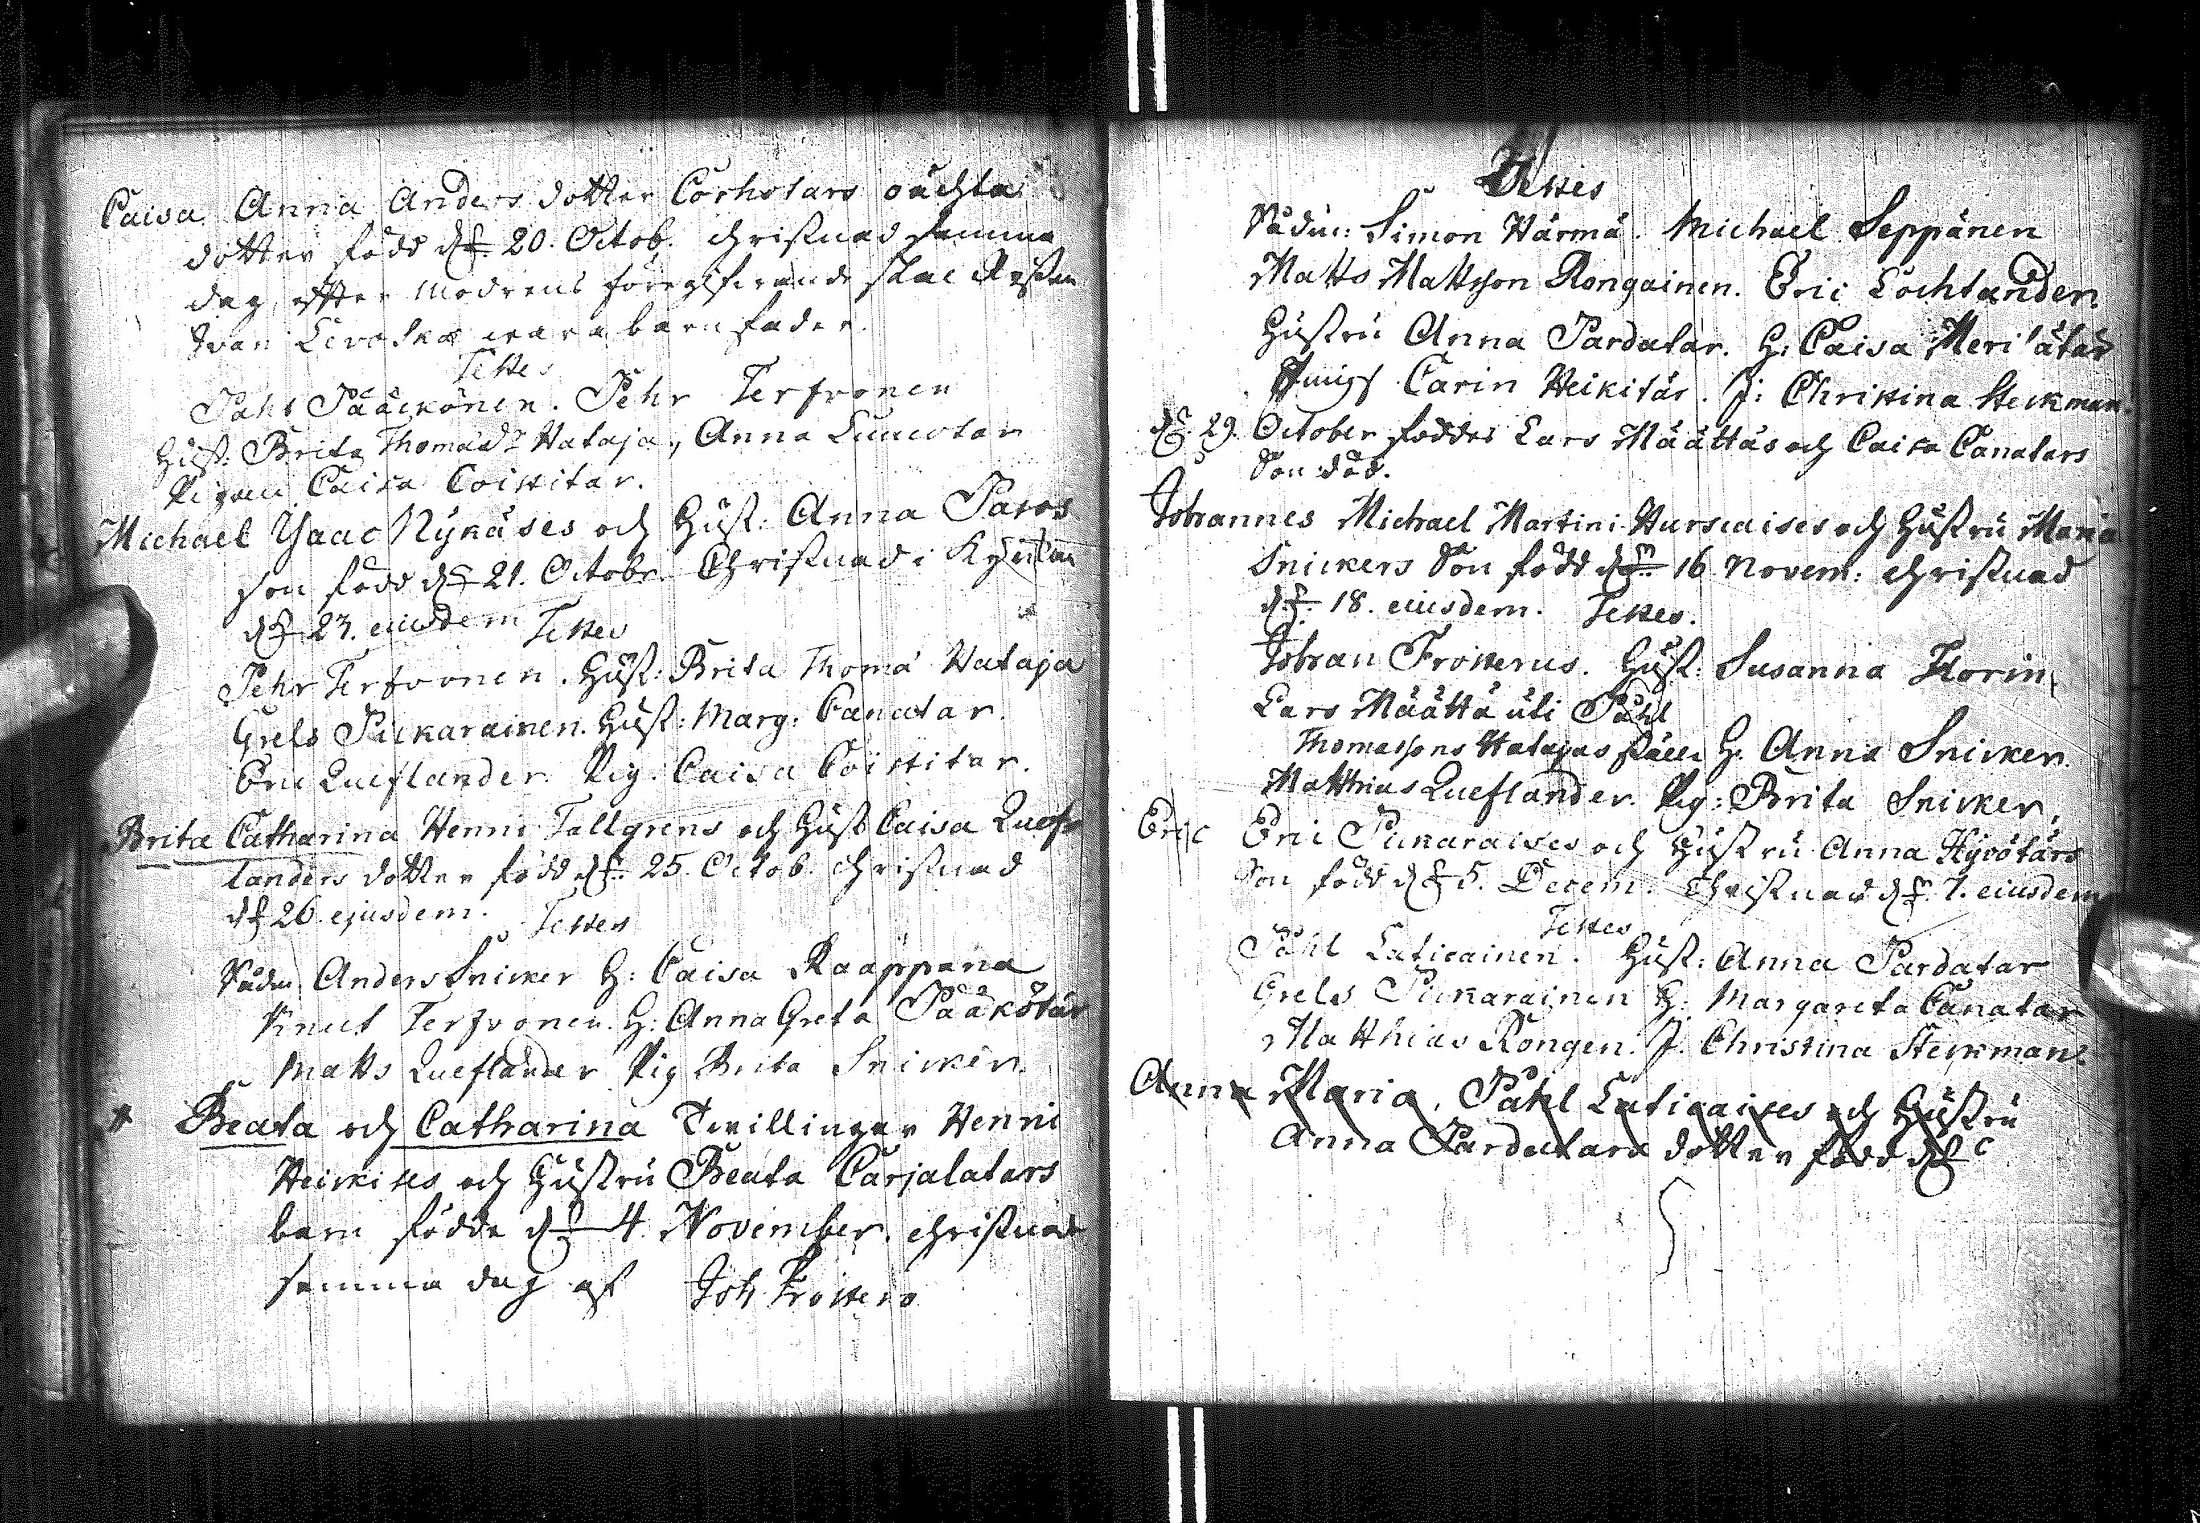 Caisa Anna Anders dotter Corhotars oächta
dotter född d. 20. Octob. christnad samma
dag, effter modrens föregifvande skal Ryssen
Ivan Levoska wara barnfader.
Testes
Påhl Pääckönen. Pehr Terfvonen
Hust: Brita Thomæd:r Hataja, Anna
Pigan Caisa Coistitar.
Michael Ysaac Nykäses och Hust: Anna
son född d. 21. Octobr. Christnad i
d. 23. eiusdem Testes
Pehr Terfvonen. Hust: Brita Thomæ Hataja
Grels Pickarainen. Hust: Marg: Canatar.
Eric Queflander. Pig: Caisa Coistitar.
Brita Catharina Henric Tallgrens och Hust Caisa Quef-
landers dotter född d. 25. Octob. christnad
d. 26 ejusdem. Testes
Nådm. Anders Snicker H: Caisa Kaappana
Knut Terfvonen. H: Anna Greta Pääkötär
Matts Queflander Pig Brita Snicker.
Beata och Catharina Twillingar Henric
Heickises och Hustru Beata Carjalatars
barn födde d. 4 November. christnade
samma dag af Joh Frosterus
Testes
Nådm: Simon Härmä. Michael Seppänen
Matts Mattsson Rongainen. Eric Lochtander.
Hustru Anna Pardatar. H: Caisa Merilätär
Jungf Carin Heikitär. J: Christina Steckman.
d. 29. October föddes Lars Määttäs och Caisa Canatars
Son död.
Johannes Michael Martini Hurscaises och Hustru Maria
Snickers Son född d. 16 Novem: christnad
d. 18. eiusdem. Testes.
Johan Frosterus. Hust: Susanna Florin,
Lars Määttä uti Påhl
Thomassons Hatajas ställe H. Anna Snicker.
Matthias Queflander. Pig: Brita Snicker,
Eric Eric Pickaraises och Hustru Anna Hyvötärs
Son född d. 5. Decem. Christnad d. 7. eiusdem
Testes
Påhl Laticainen. Hust: Anna Pardatar
Grels Pickarainen H. Margareta Canatar
Matthias Rongen. J. Christina Steckman.
Anna Maria, Påhl Laticaises och Hustru
Anna Pardatars dotter född d.